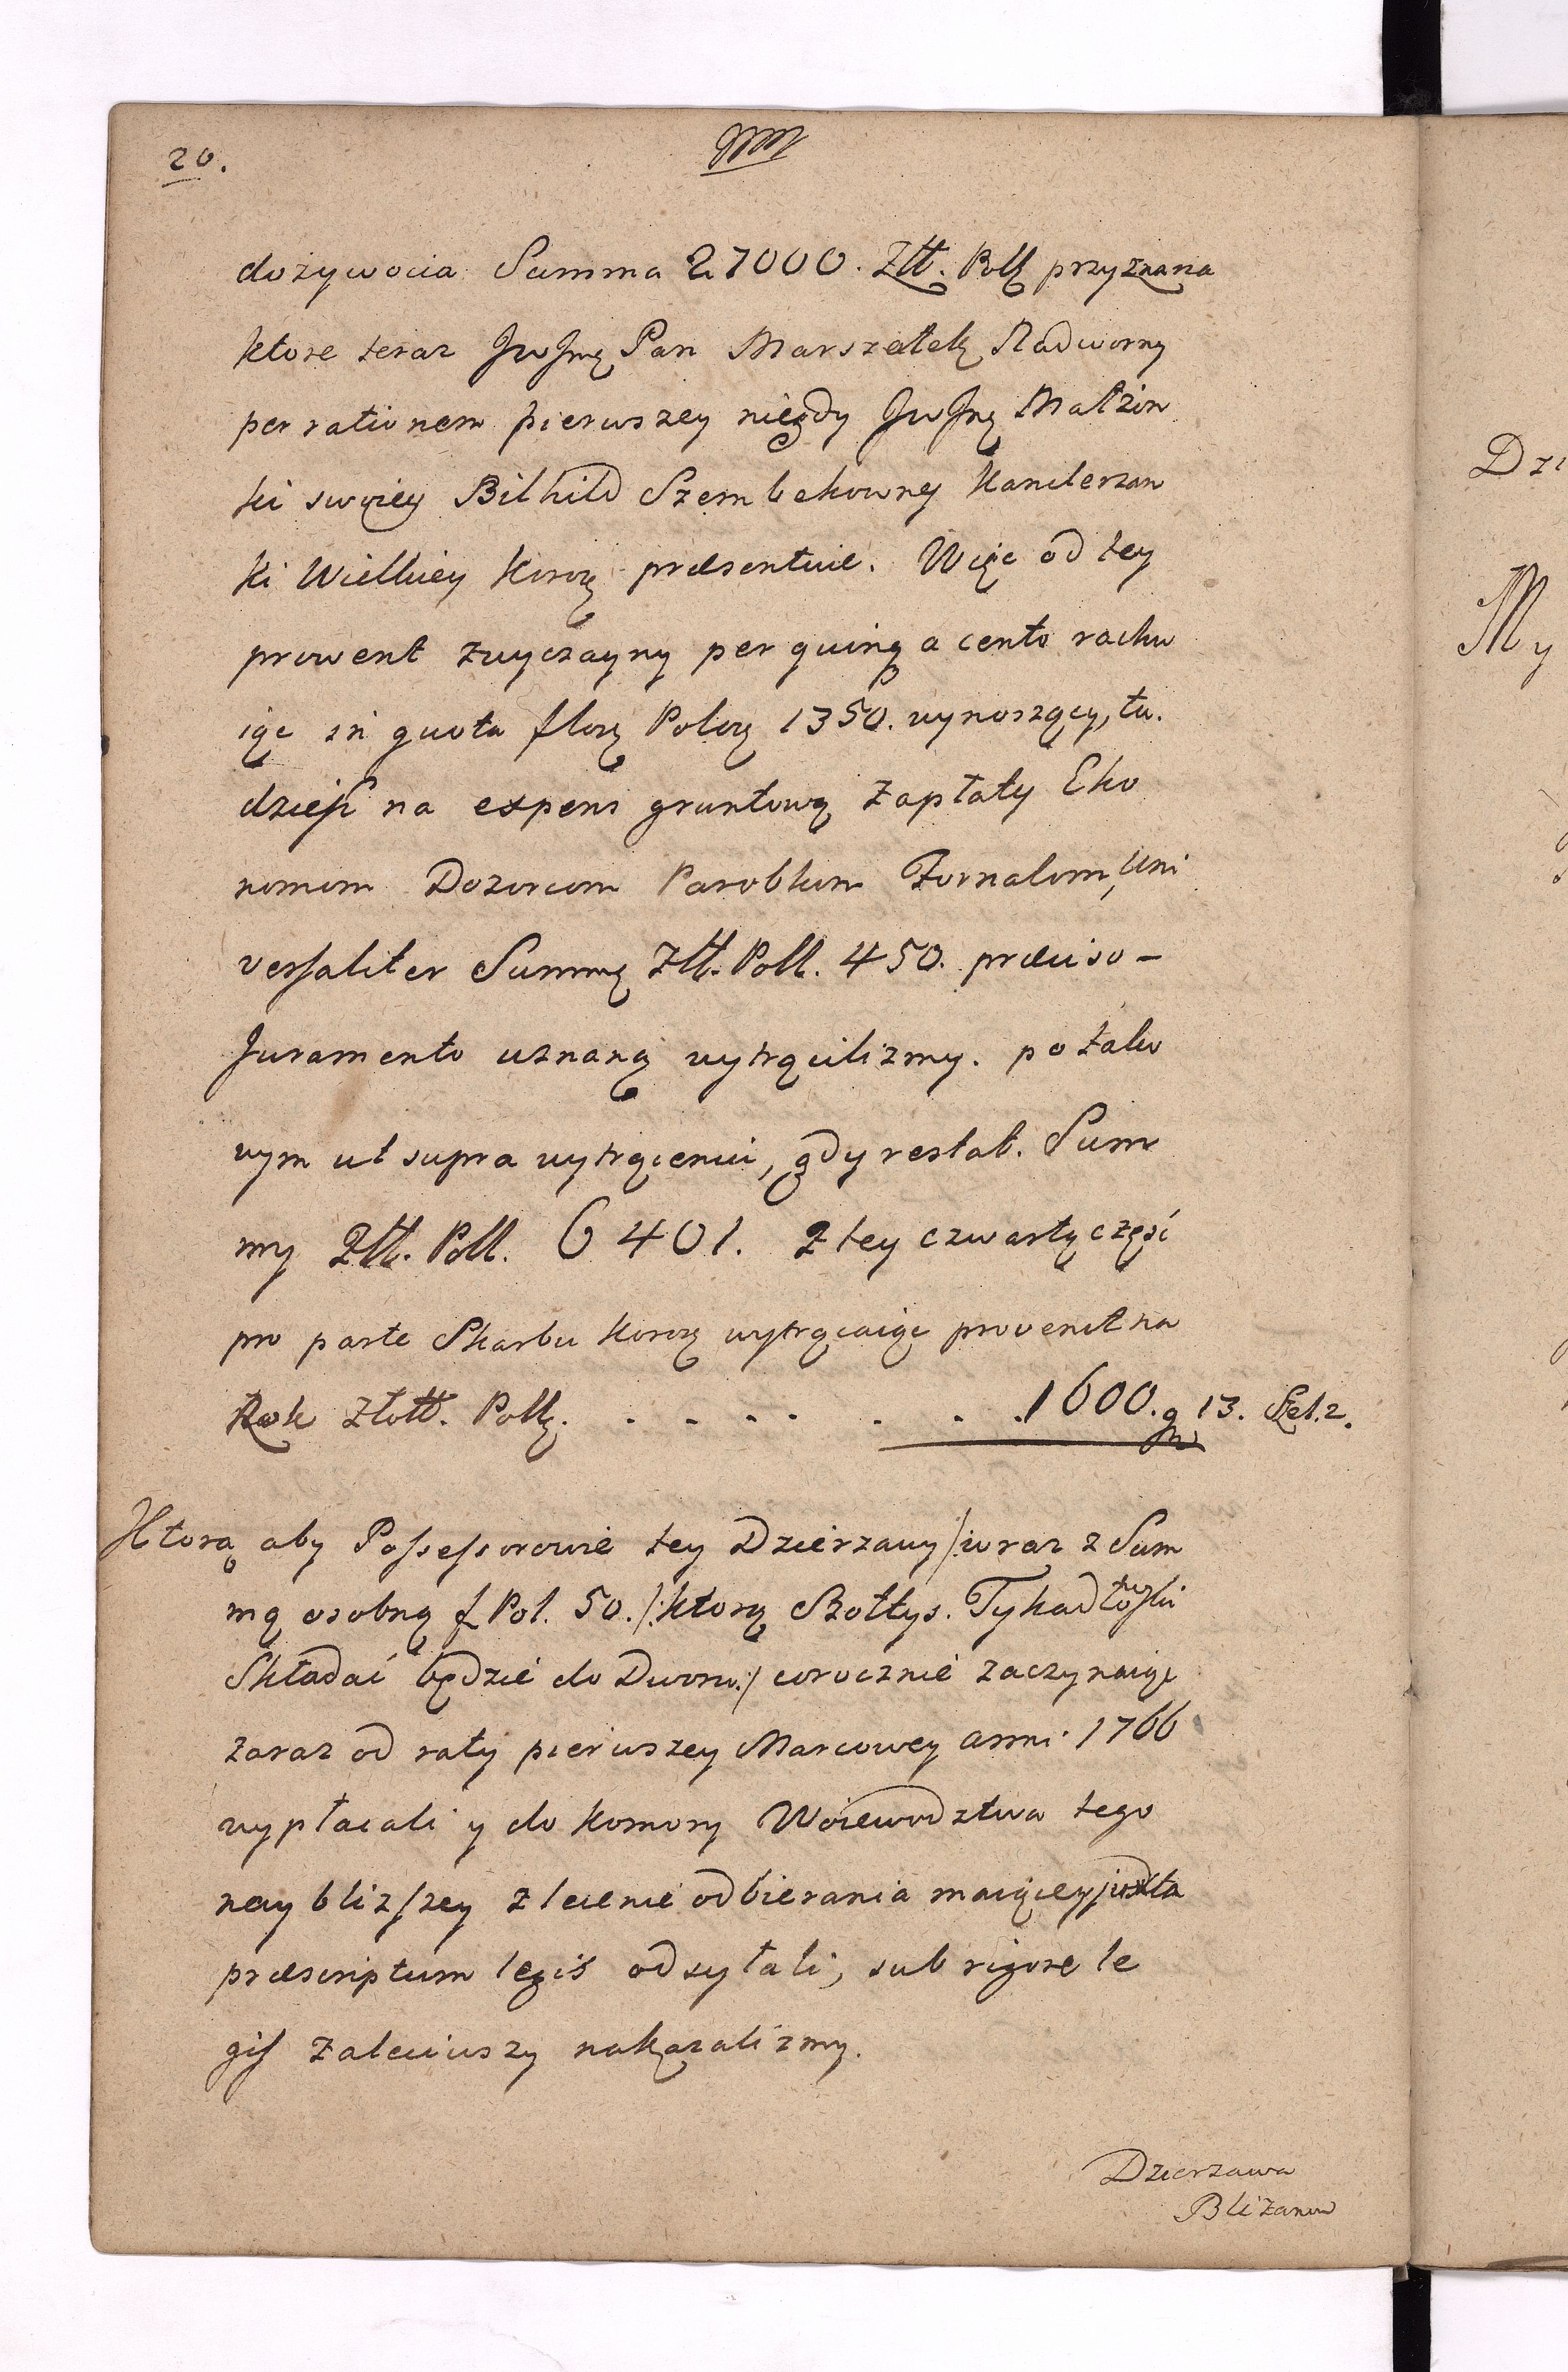 20.
dozywocia Summa 27000. Złł. Poll przyznana
ktore teraz JwJmę Pan Marszałek Nadworny
per rationem pierwszey niegdy JwJmę Małzon
ki swoiey Bilhild Szembekowney Kanclerzan
ki Wielkiey Koroę præsentuie. Więc od tey
prowent zwyczayny per quinq a cento rachu
iąc in quota florę Poloę 1350. wynoszący, tu.
dziesz na expens gruntową zapłaty Eko
nomom Dozorcom Parobkom Fornalom, Uni
versaliter Summę Złł. Poll. 450. præviso -
Juramento uznaną wytrącilizmy. po tako
wym ut supra wytrąceniu, gdy restat. Sum
my Złł. Poll. 6401. z tey czwartą częsć
pro parte Skarbu Koroę wytrącaiąc provenit na
Rok Złołł. Pollę. . . . . . . . 1600. gr 13. Szel. 2.
Ktorą aby Possessorowie tey Dzierzawy /: wraz z Sum
mą osobną f Pol. 50. /: ktorą Szołtys. Tykadłowski
Składać będzie do Dworu :/ corocznie zaczynaiąc
zaraz od raty pierwszey Marcowey anni 1766
wypłacali y do Komory Woiewodztwa tego
naybliższey zlecenie odbierania maiącey juxta
præscriptum legis odsyłali, sub rigore le
gis zaleciwszy nakazalizmy.
Dzierzawa
Blizanow
Dzi
My